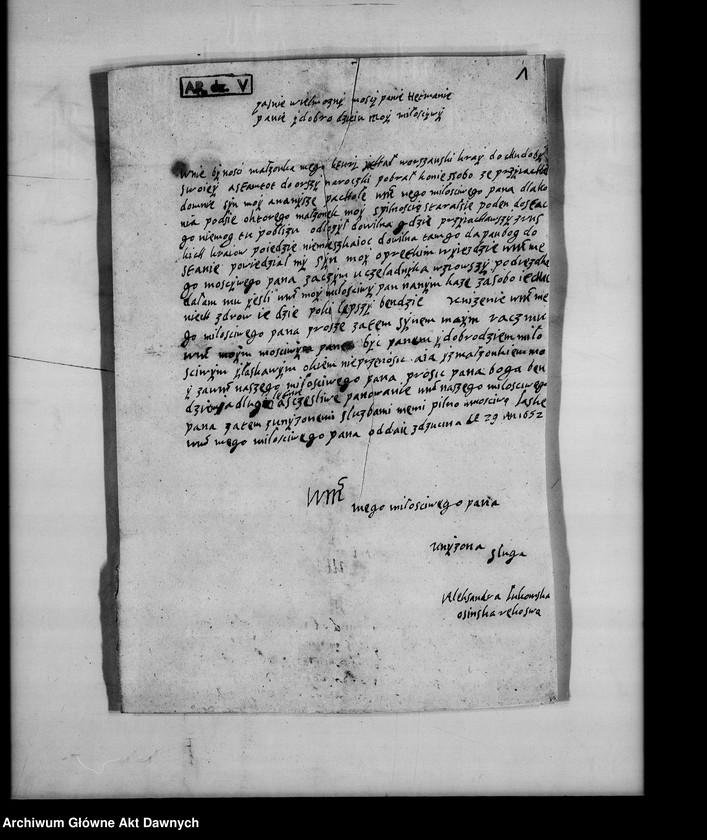 AR dz. V
1
jasnie wielmozny mosci panie Hetmanie
panie y dobro dzieiu moy miłosciwy
wnie bytnosc małzonka mego ktury iechał w orszanski kray do
swoiey a stamtot do orszy naroczki pobrał konie zsobo ze przyiachał
domnie syn moy ananyasz pacholę wm mego miłosciwego pana dlako
nia podsie oktorego małzonek moy spilnoscią starałsie poden dostac
go niemog tu pobliżu odłozył dowilna gdzie przyiachawszy zrus
kich kraiow poiedzie niemieszkaioc dowilna tam go da panbog do
stanie powiedział my syn moy opretkim wyiezdzie wm me
go mosciwego pana zaczym uczeladnika wziowszy podiezdka
dałam mu iesli wm moy miłosciwy pan nanym kaze zasobo iechac
niech zdrow ie dzie poki lepszy bendzie uniżenie wm me
go miłosciwego pana prosze zatem synem moym racz mu
wm moym mosciwym panem byc panem y dobrodziem miło
sciwym y łaskawym okiem nieprzeniosc aia zmałzonkiem mo
y zawm naszego miłosciwego pana prosic pana boga ben
dziem o długoletnie a sczesliwe panowanie wm naszego miłosciwego
pana zatem zunyzonemi sluzbami memi pilno wmosciwą łaske
wm mego miłosciwego pana oddaie zdzucina de 29 1652
Wm
mego miłosciwego pana
unyzona sluga
Aleksandra Łukomska
osinska rękoswą
Archiwum Główne Akt Dawnych